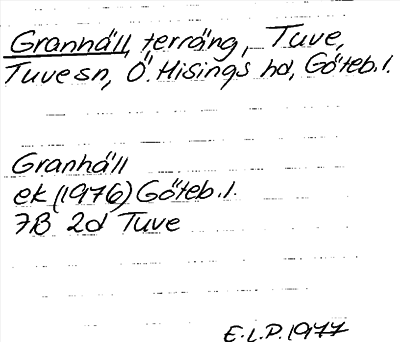 Granhäll, terräng, Tuve,
Tuve sn, Ö. Hisings hd, Göteb. l.
Granhäll
ek (1976) Göteb. l.
7B 2d Tuve
E.L.P. 1977